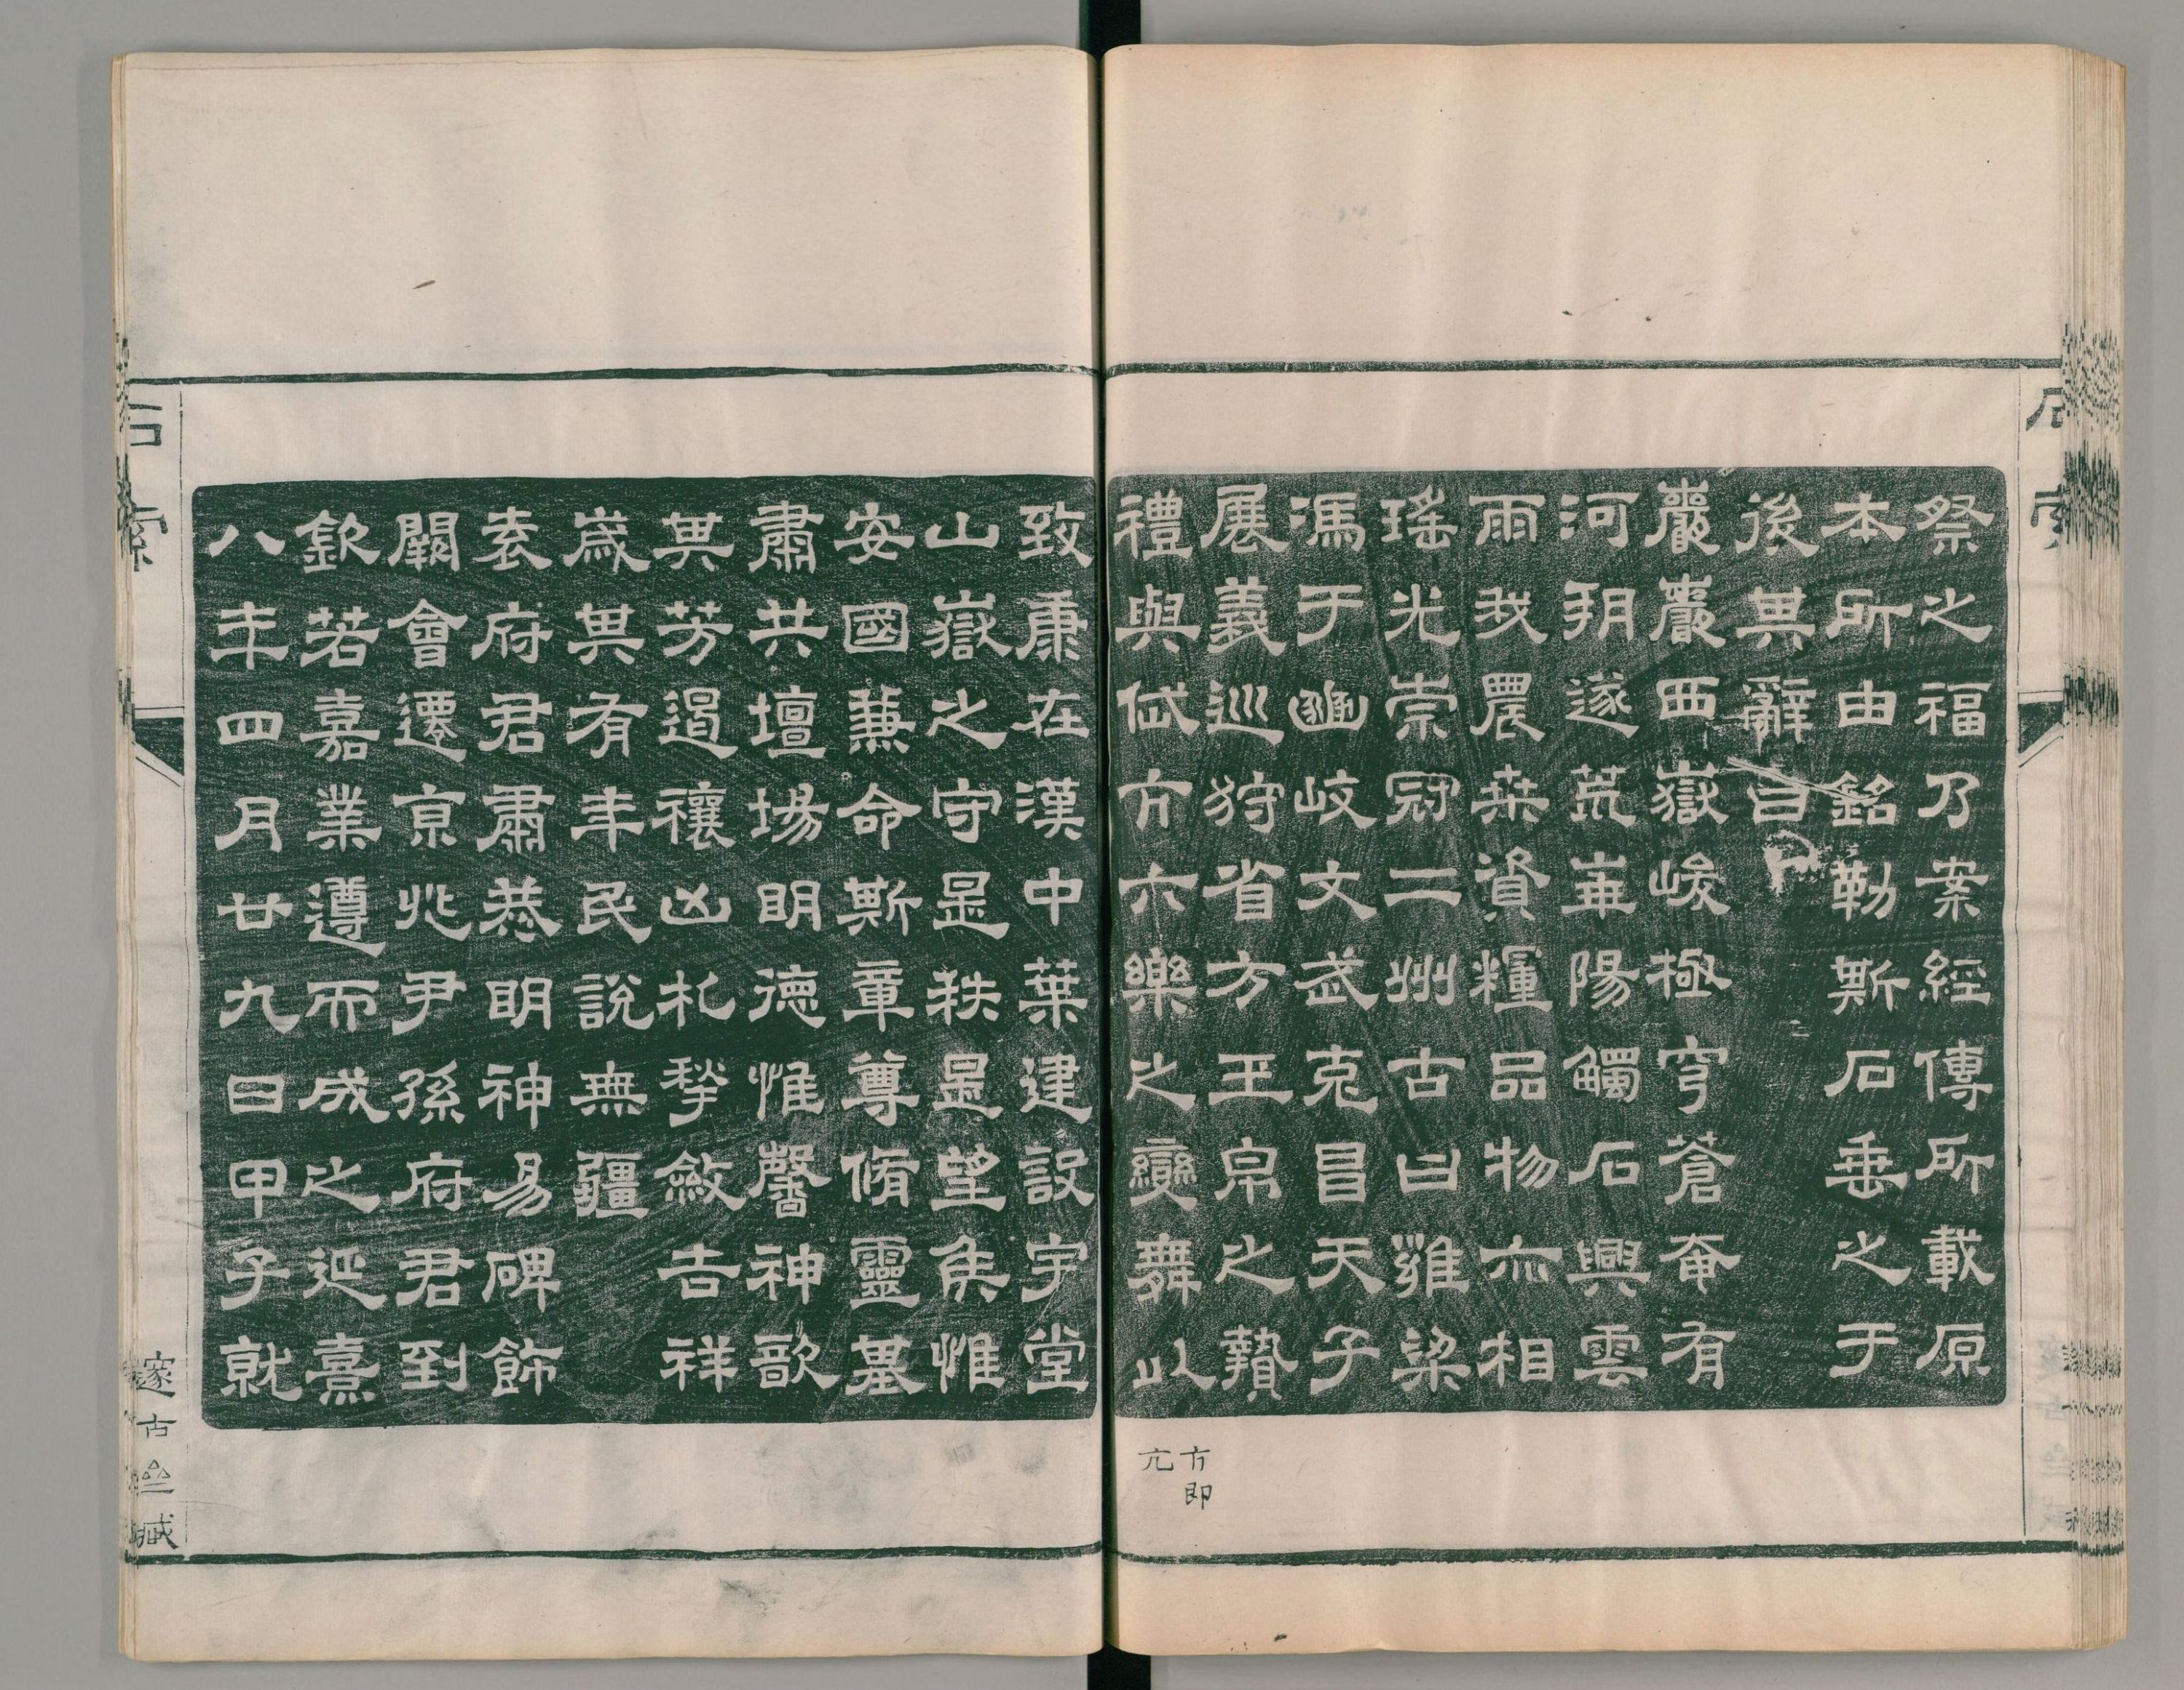 祭之福乃案經傳所載原
本所由銘勒斯石垂之于
後其辭曰
巖巖西嶽峻極穹蒼奄有
河朔遂荒崋陽觸石興雲
雨我農桒資糧品物亦相
瑤光崇冠二州古曰雝梁
馮于豳岐文武克昌天子
展義巡狩省方王帛之贄
禮與岱亢六樂之變舞以
致康在漢中葉建設宇堂
山嶽之守是秩是望矦惟
安國兼命斯章尊脩靈基
肅共壇場明德惟馨神歆
其芳遏禳凶札揫斂吉祥
歲其有年民說無疆
袁府君肅恭明神易碑飾
闕會遷京兆尹孫府君到
欽若嘉業遵而成之延熹
八年四月廿九日甲子就
亢即
亢
石索
邃古齋藏
石索